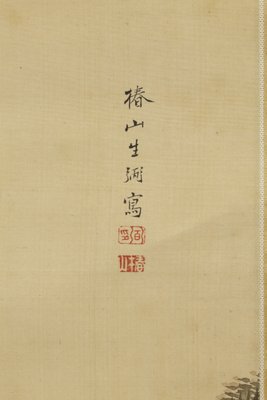 椿山生弼寫